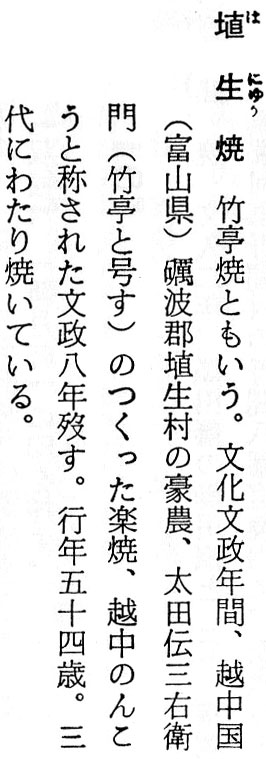 埴生焼　竹亭焼ともいう。文化文政年間、越中国
（富山県）礪波郡埴生村の豪農、太田伝三右衛
門（竹亭と号す）のつくった楽焼、越中のんこ
うと称された文政八年歿す。行年五十四歳。三
代にわたり焼いている。
は
にゅう